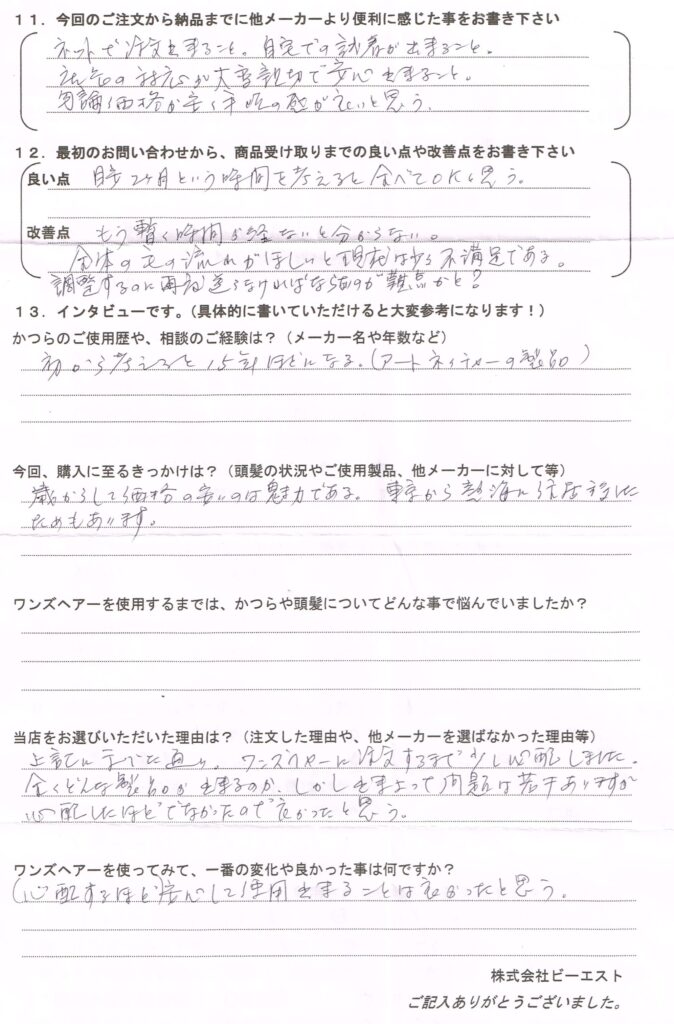 １１．今回のご注文から納品までに他メーカーより便利に感じた事をお書き下さい
ネットで注文出来ること。自宅での試着が出来ること。
社長の対応が大変親切で安心出来ること。
勿論価格が安く手頃の感が良いと思う。
１２．最初のお問い合わせから、商品受け取りまでの良い点や改善点をお書き下さい
良い点 目安2ヶ月という時間を考えると全べてOKと思う。
改善点 もう暫く時間が経ないと分からない。
全体の毛の流れがほしいと現在は少々不満足である。
調整するのに再び送らなければならぬのが難点かと？
１３．インタビューです。（具体的に書いていただけると大変参考になります！）
かつらのご使用歴や、相談のご経験は？（メーカー名や年数など）
初から考えると15年ほどになる。（アートネイチャーの製品）
今回、購入に至るきっかけは？（頭髪の状況やご使用製品、他メーカーに対して等）
歳からして価格の安いのは魅力である。東京から熱海に
ためもあります。
ワンズヘアーを使用するまでは、かつらや頭髪についてどんな事で悩んでいましたか？
当店をお選びいただいた理由は？（注文した理由や、他メーカーを選ばなかった理由等）
上記に通り。ワンズヘヤーに注文するまで少し心配しました。
全くどんな製品が出来るのか、しかし出来よって問題は若干ありますが
心配したほどでなかったので良かったと思う。
ワンズヘアーを使ってみて、一番の変化や良かった事は何ですか？
（心配するほど）安心して使用出来ることは良かったと思う。
株式会社ビーエスト
ご記入ありがとうございました。